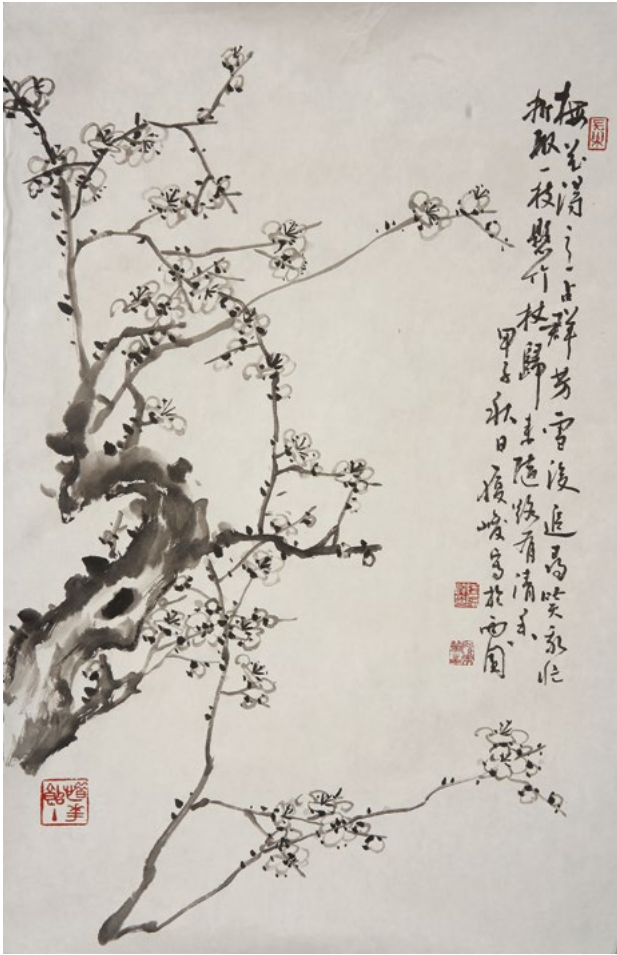 梅花得意占群芳雪後追尋笑我忙
折取一枝懸竹杖歸來隨路有清香
甲子秋日峻寫於西園